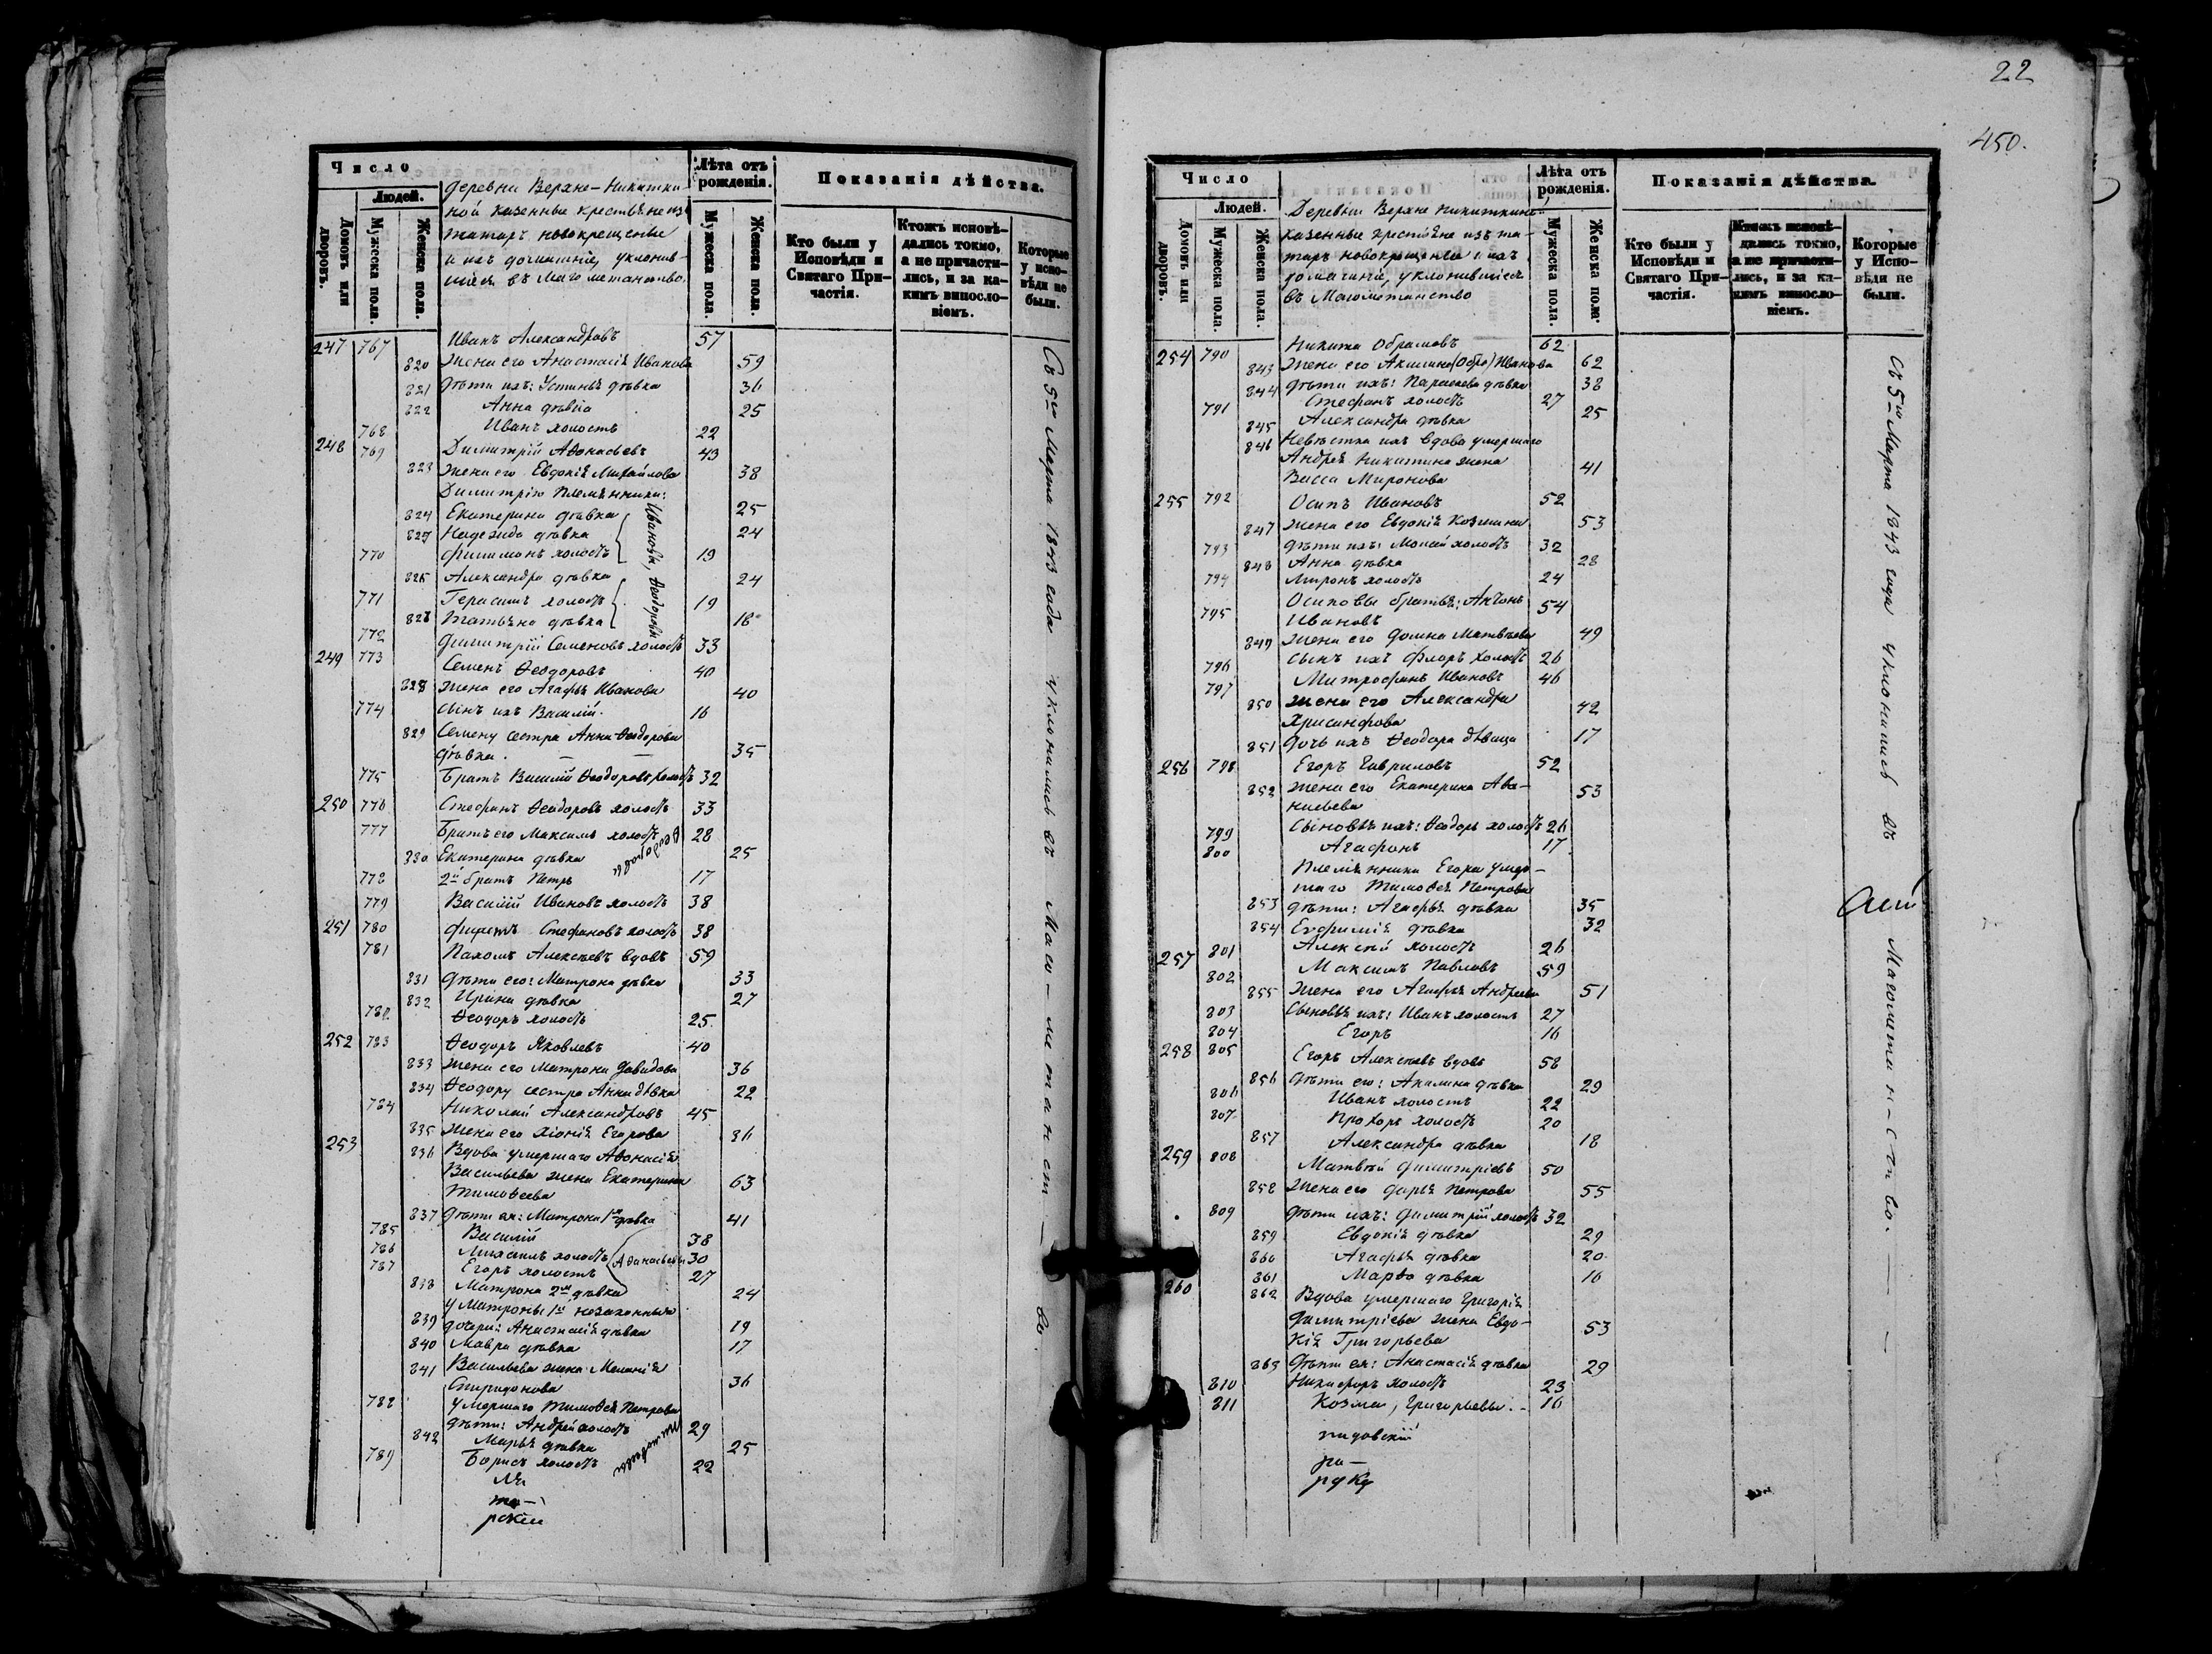 Число
Людей.
Домовъ или дворовъ.
Мужеска пола.
Женска пола.
деревни Верхне-Никитки-
ной казенные крестьяне из
татаръ новокрещеные
и ихъ домашніе, уклонив-
шіеся въ Магометанство.
Лѣта отъ рожденія.
Мужеска пола.
Женска пола.
Показанія дѣйства.
Кто были у Исповѣди и Святаго Причастія.
Ктожъ исповѣдались токмо, а не причастились, и за какимъ винословіемъ.
Которые у исповѣди не были.
247 767 Иванъ Александровъ 57
820 жена его Анастасія Иванова 59
821 дѣти ихъ: Устинья дѣвка 36
822 Анна дѣвка 25
768 Иванъ холостъ 22
248 769 Димитрій Аѳонасьевъ 43
823 жена его Евдокія Михайлова 38
Димитрію племянники:
824 Екатерина дѣвка 25
825 Надежда дѣвка 24
770 Филимонъ холостъ 19
Ивановы,
826 Александра дѣвка 24
771 Герасимъ холостъ 19
827 Татьяна дѣвка 18
Ѳеодоровы
772 Димитрій Семеновъ холостъ 33
249 773 Семенъ Ѳеодоровъ 40
828 жена его Агафья Иванова 40
774 сынъ ихъ Василій. 16
829 Семену сестра Анна Ѳеодорова
дѣвка. — — 35
775 Братъ Василій Ѳеодоровъ холостъ 32
250 776 Стефанъ Ѳеодоровъ холостъ 33
777 Братъ его Максимъ холостъ 28
830 Екатерина дѣвка 25
Ѳеодоровы
778 2й братъ Петръ 17
779 Василій Ивановъ холостъ 38
251 780 Стефановъ холостъ 38
781 Пахомъ Алексѣевъ вдовъ 59
831 дѣти его: Матрона дѣвка 33
832 Ирина дѣвка 27
782 Ѳеодоръ холостъ 25
252 783 Ѳеодоръ Яковлевъ 40
833 жена его Матрона Давидова 36
834 Ѳеодору сестра Анна дѣвка 22
784 Николай Александровъ 45
835 жена его Хіонія Егорова 36
253 836 Вдова умершаго Аѳонасія
Васильева жена Екатерина
Тимоѳеева 63
837 дѣти ея: Матрона 1я дѣвка 41
785 Василій 38
786 Михаилъ холостъ 30
787 Егоръ холостъ 27
Аѳанасьевы
838 Матрона 2я дѣвка 24
у Матроны 1й незаконныя
839 дочери: Анастасія дѣвка 19
840 Мавра дѣвка 17
841 Васильева жена Меланія
Спиридонова 36
788 умершаго Тимоѳея Петрова
дѣти: Андрей холостъ 29
842 Марья дѣвка 25
789 Борисъ холостъ 22
Тимоѳеевы
Съ 5го Марта 1843 года уклонились въ Маго-метанст-во.
22
450.
Число
Людей.
Домовъ или дворовъ.
Мужеска пола.
Женска пола.
Деревни Верхне Никиткиной
казенные крестьяне изъ та-
таръ новокрещеные и ихъ
домашніе, уклонившіеся
въ Магометанство
Лѣта отъ рожденія.
Мужеска пола.
Женска пола.
Показанія дѣйства.
Кто были у Исповѣди и Святаго Причастія.
Ктожъ исповѣдались токмо, а не причастились, и за какимъ винословіемъ.
Которые у Исповѣди не были.
254 790 Никита Обрамовъ 62
843 жена его Акилина Иванова 62
844 дѣти ихъ: Параскева дѣвка 38
791 Стефанъ холостъ 27
845 Александра дѣвка 25
846 Невѣстка ихъ вдова умершаго
Андрея Никитина жена
Васса Миронова 41
255 792 Осипъ Ивановъ 52
847 жена его Евдокія Козмина 53
793 дѣти ихъ: Мокій холостъ 32
848 Анна дѣвка 28
794 Миронъ холостъ 24
795 Осиповы братья: Антонъ
Ивановъ 54
849 жена его Домна Матвѣева 49
796 сынъ ихъ Флоръ холостъ 26
797 Митрофанъ Ивановъ 46
850 жена его Александра
Хрисанфова 42
851 дочь ихъ Ѳеодора дѣвица 17
256 798 Егоръ Гавриловъ 52
852 жена его Екатерина Аѳа-
насьева 53
799 сыновья ихъ: Ѳеодоръ холостъ 26
800 Агафонъ 17
Племянники Егора умер-
шаго Тимоѳея Петрова
853 дѣти: Агафья дѣвка 35
854 Евфимія дѣвка 32
801 Алексѣй холостъ 26
257 802 Максимъ Павловъ 59
855 жена его Агафья Андреева 51
803 сыновья ихъ: Иванъ холостъ 27
804 Егоръ 16
258 805 Егоръ Алексѣевъ вдовъ 58
856 дѣти его: Акилина дѣвка 29
806 Иванъ холостъ 22
807 Прохоръ холостъ 20
857 Александра дѣвка 18
259 808 Матвѣй Димитріевъ 50
858 жена его Дарья Петрова 55
809 дѣти ихъ: Димитрій холостъ 32
859 Евдокія дѣвка 29
860 Агафья дѣвка 20
861 Марѳа дѣвка 16
260 862 Вдова умершаго Григорія
Димитріева жена Евдо-
кія Григорьева 53
863 дѣти ея: Анастасія дѣвка 29
810 Никифоръ холостъ 23
811 Козма, Григорьевы. 16
Съ 5го Марта 1843 года уклонились въ Магометан-ство.